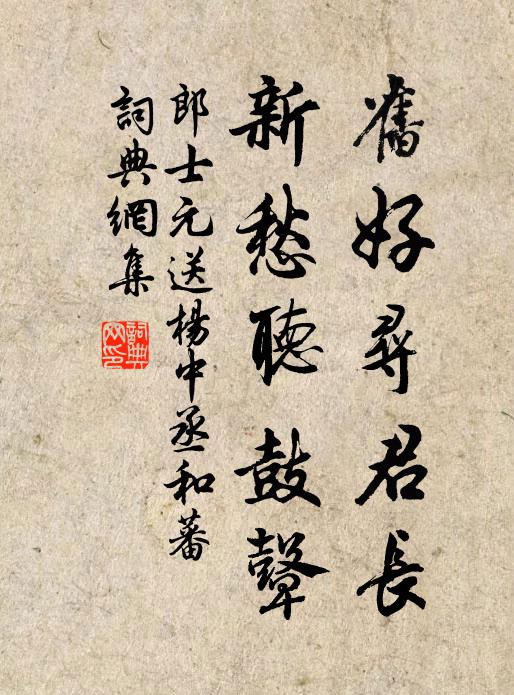 舊好尋君長
新愁聽鼓鼙
郎士元送楊中丞和蕃
詞典網集
詞典網印